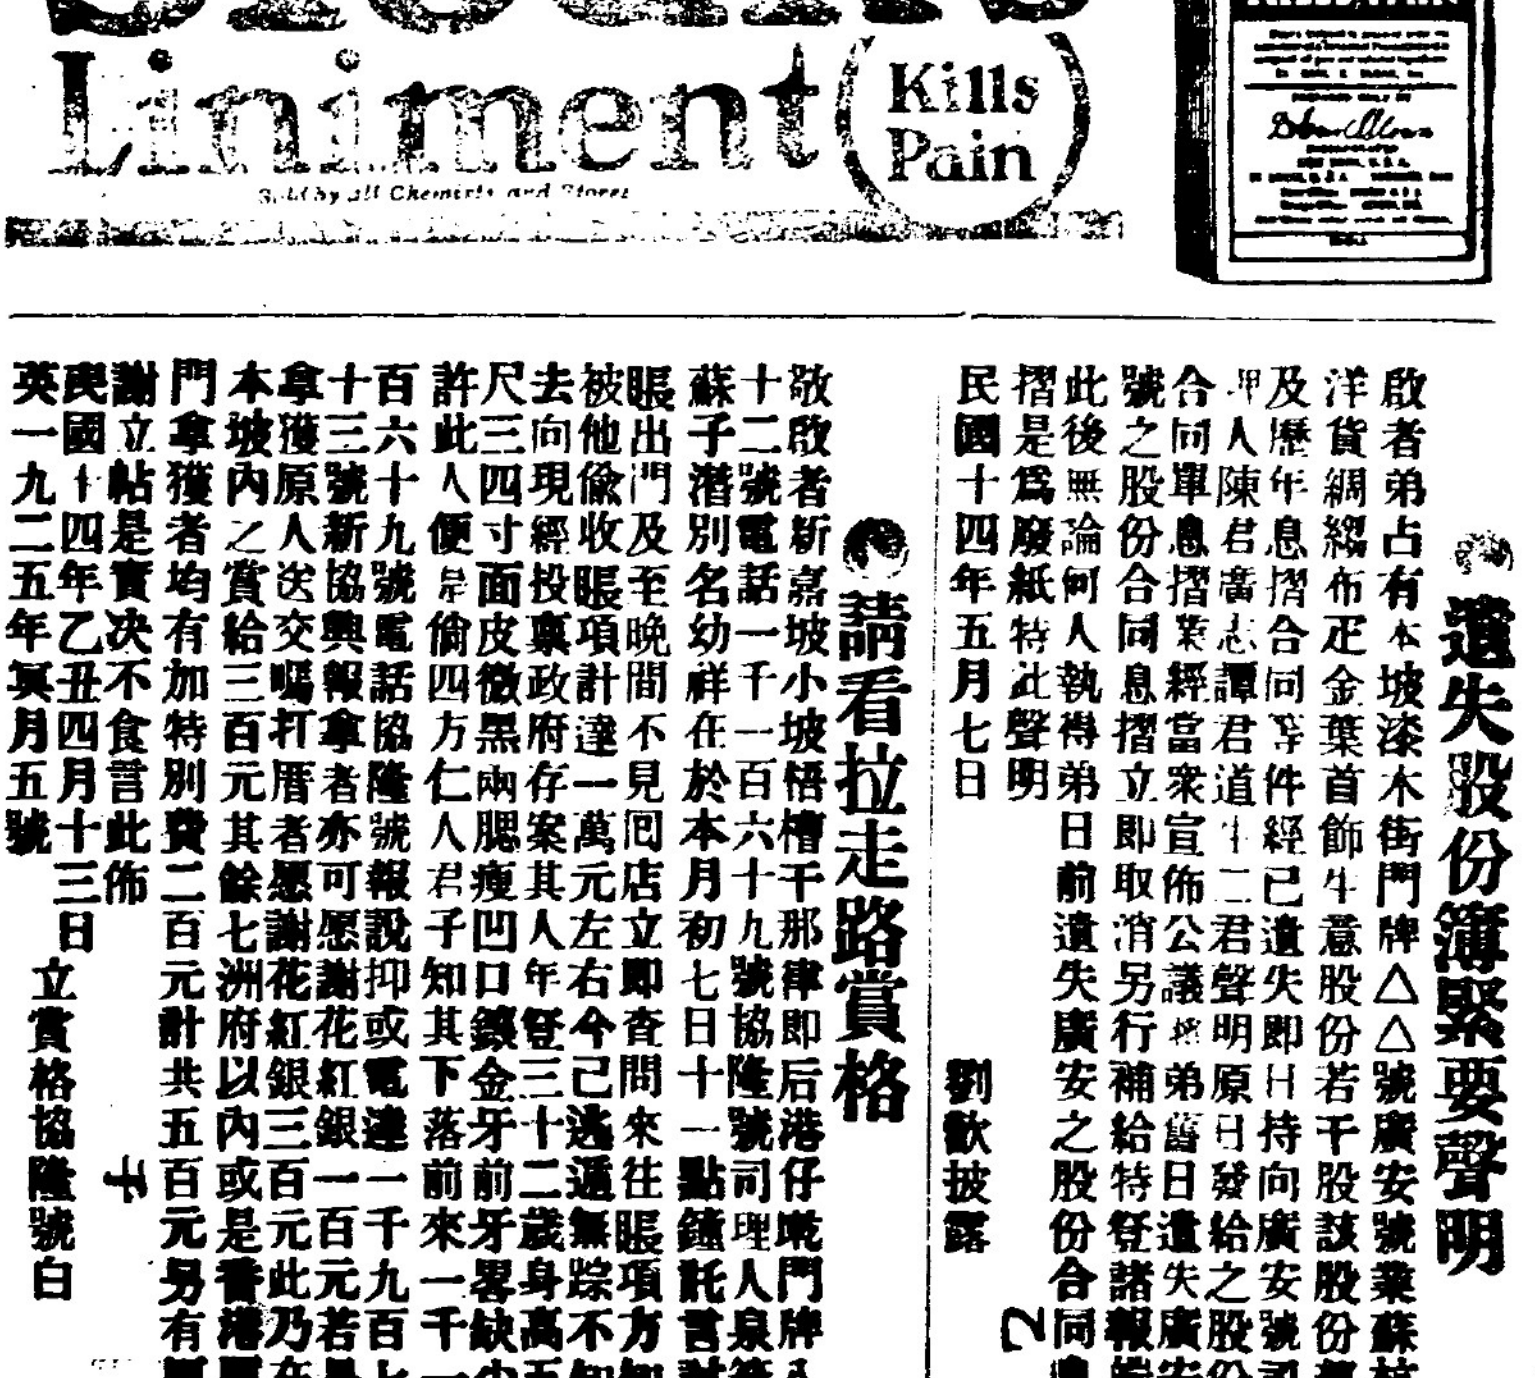 Liniment
Kills
Pain
Sold by all Chemists and Stores
遺失股份簿緊要聲明
啟者弟占有本坡漆木街門牌△△號廣安號業蘇杭
洋貨綢縐布疋金葉首飾生意股份若干股該股份
及歷年息摺合同等件經已遺失即日持向廣安號司
理人陳君廣志譚君道生二君聲明原日發給之股份
合同單息摺業經當衆宣佈公議將弟舊日遺失廣安
號之股份合同息摺立即取消另行補給特登諸報端
此後無論何人執得弟日前遺失廣安之股份合同息
摺是爲廢紙特此聲明
民國十四年五月七日
劉歡披露
2
請看拉走路賞格
敬啟者新嘉坡小坡梧槽干那律即后港仔墘門牌八
十二號電話一千一百六十九號協隆號司理人泉
蘇子潛別名幼祥在於本月初七日十一點鐘託言討
賬出門及至晚間不見囘店立即查問來往賬項方知
被他偸收賬項計達一萬元左右今己逃遁無踪不知
去向現經投禀政府存案其人年登三十二歲身高五
尺三四寸面皮微黑兩腮瘦凹口鑲金牙前牙畧缺少
許此人便是倘四方仁人君子知其下落前來一千一
百六十九號電話協隆號報說抑或電達一千九百七
十三號新協興報拿者亦可愿謝花紅銀一百元若是
拿獲原人送交嗎打厝者愿謝花紅銀三百元此乃在
本坡內之賞給三百元其餘七洲府以內或是香港厦
門拿獲者均有加特別費二百元計共五百元另有
謝立帖是實决不食言此佈
民國十四年乙丑四月十三日
英一九二五年冥月五號
立賞格協隆號白